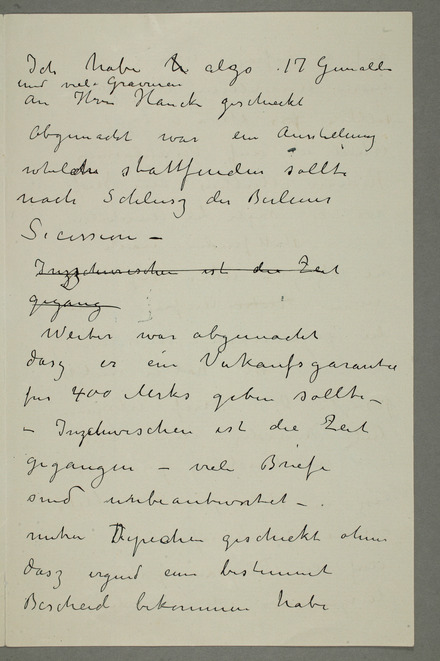 Ich habe also 17 Gemälde
und viele Gravuren
an Herrn Hauck geschickt
Abgemacht war ein Ausstellung
welche stattfinden sollte
nach Schlusz der Berliner
Secession –
Inzschwischen ist die Zeit
gegang
Weiter war abgemacht
dasz er ein Verkaufsgarantie
für 400 Merks geben sollte –
– Inzschwischen ist die Zeit
gegangen – viele Briefe
sind unbeantwortet –
Depechen geschickt ohne
dasz irgend ein bestimmt
Bescheid bekommen habe